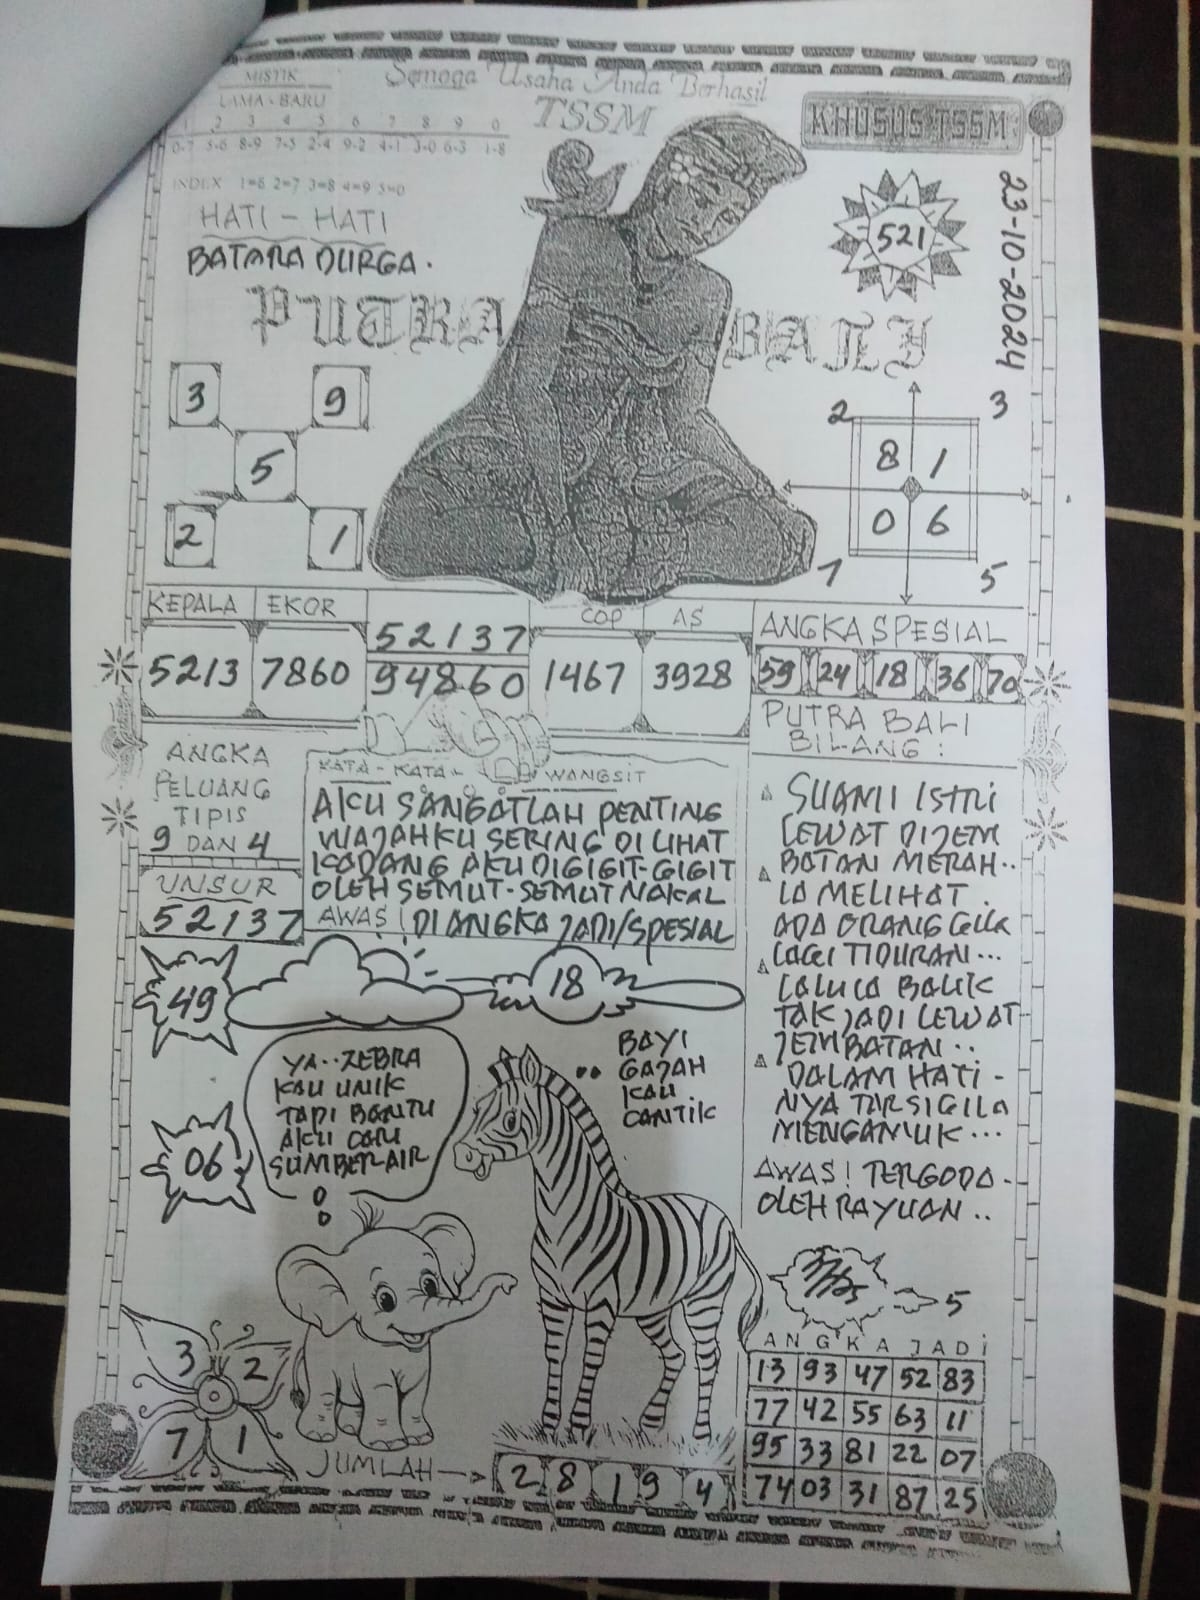 MISTIK
Semoga Usaha Anda Berhasil
LAMA - BARU
TSSM
KHUSUS TSSM
1 2 3 4 5 6 7 8 9 0
0-7 5-6 8-9 7-5 2-4 9-2 4-1 3-0 6-3 1-8
INDEX 1=6 2=7 3=8 4=9 5=0
23-10-2024
HATI - HATI
521
BATARA DURGA.
PUTRA BALI
3 9
5
2 1
2 3
8 1
0 6
1 5
KEPALA EKOR COP AS
5213 7860
52137
94860
1467 3928
ANGKA SPESIAL
59 24 18 36 70
ANGKA
PELUANG
TIPIS
9 DAN 4
UNSUR
52137
KATA - KATA - WANGSIT
AKU SANGATLAH PENTING
WAJAHKU SERING DI LIHAT
KADANG AKU DIGIGIT-GIGIT
OLEH SEMUT-SEMUT NAKAL
AWAS! DI ANGKA JADI/SPESIAL
PUTRA BALI
BILANG :
SUAMI ISTRI
LEWAT DI JEM
BATAN MERAH..
IA MELIHAT
ADA ORANG GILA
LAGI TIDURAN...
LALU IA BALIK
TAK JADI LEWAT
JEMBATAN..
DALAM HATI -
NYA TAR SI GILA
MENGAMUK...
AWAS! TERGODA -
OLEH RAYUAN..
49
18
06
YA.. ZEBRA
KAU UNIK
TAPI BANTU
AKU CARI
SUMBER AIR
BAYI
GAJAH
KAU
CANTIK
5
3 2
7 1
JUMLAH
2 8 1 9 4
ANGKA JADI
13 93 47 52 83
77 42 55 63 11
95 33 81 22 07
74 03 31 87 25